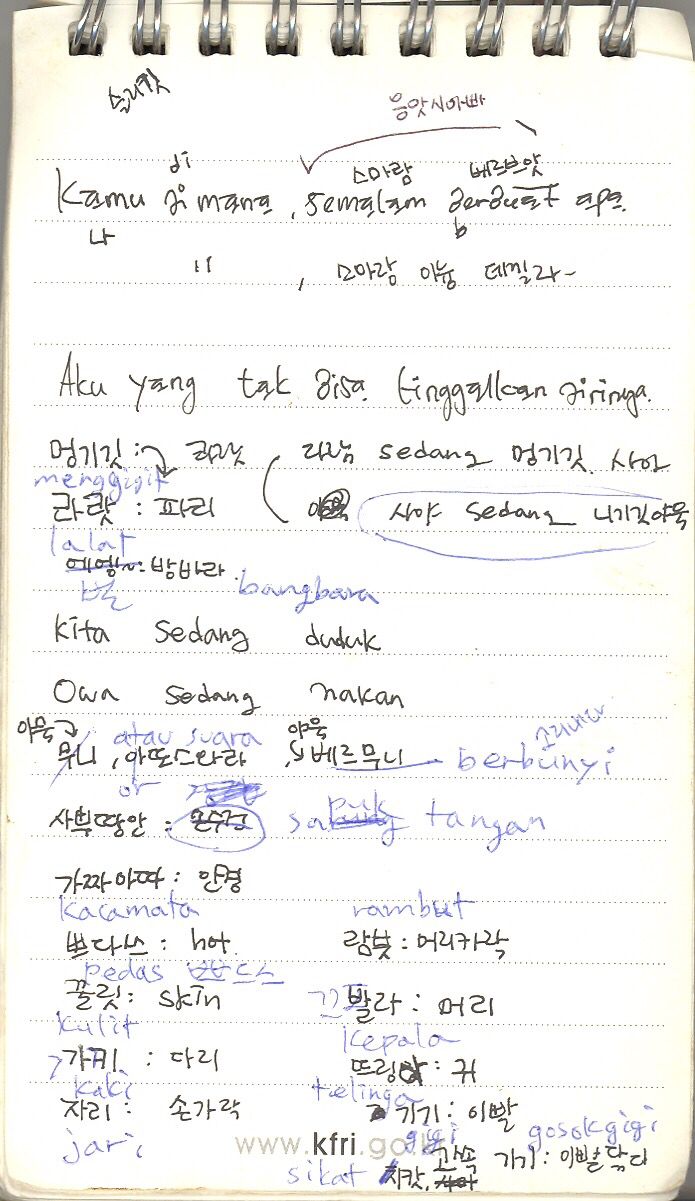 슬리깟
응앗시아빠
di 스마람 베르브앗
Kamu dimana, semalam berbuat apa.
나 b
" , 스마람 아늉 데찔라~
Aku yang tak bisa tinggalkan dirinya.
멍기깃: 라랏 라랏 sedang 멍기깃 사야
menggigit
라랏 : 파리 사야 sedang 니기깃 야묵
lalat
방바라
벌 bangbara
kita sedang duduk
Owa sedang makan
야묵 atau suara 야묵
무니, 아따으스와라, 베르무니 berbunyi
or
사뿌땅안 : 손수건 sapu tangan
가짜마따 : 안경
kacamata rambut
쁘다스 : hot. 람붓 : 머리카락
pedas 쁘드스
꿀릿 : skin 빨라 : 머리
kulit kepala
가끼 : 다리 뜨링아 : 귀
kaki telinga
자리 : 손가락 기기 : 이빨
jari gigi gosok gigi
www.kfri.go.kr 고속 기기 : 이빨닦다
sikat 시캇,